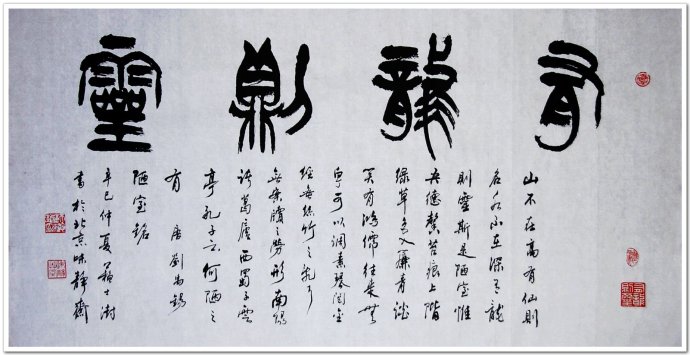 有龍則靈
山不在高有仙則
名水不在深有龍
則靈斯是陋室惟
吾德馨苔痕上階
綠草色入簾青談
笑有鴻儒往來無
白丁可以調素琴閱金
經無絲竹之亂耳
無案牘之勞形南陽
諸葛廬西蜀子雲
亭孔子云何陋之
有 唐劉禹錫
陋室銘
辛巳仲夏蘇士澍
書於北京味靜齋